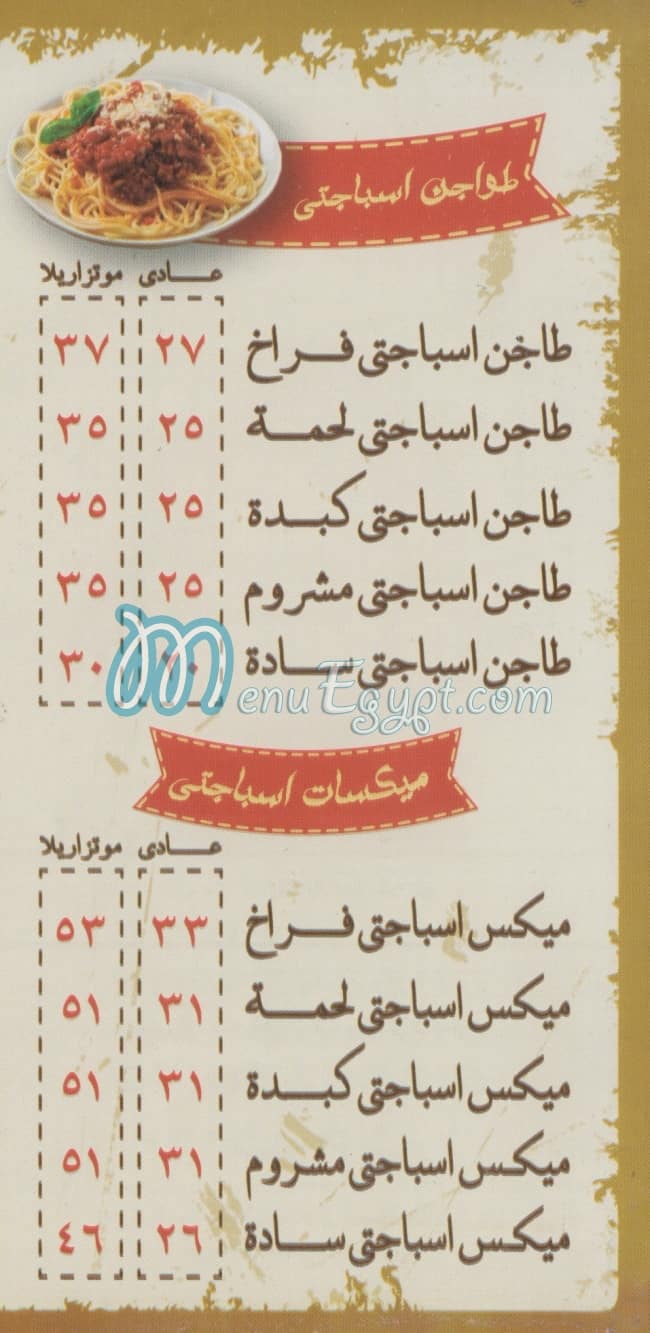 طواجن اسباجتى
عادى موتزاريلا
طاجن اسباجتى فراخ ٢٧ ٣٧
طاجن اسباجتى لحمة ٢٥ ٣٥
طاجن اسباجتى كبدة ٢٥ ٣٥
طاجن اسباجتى مشروم ٢٥ ٣٥
طاجن اسباجتى سادة ٣٠
MenuEgypt.com
ميكسات اسباجتى
عادى موتزاريلا
ميكس اسباجتى فراخ ٣٣ ٥٣
ميكس اسباجتى لحمة ٣١ ٥١
ميكس اسباجتى كبدة ٣١ ٥١
ميكس اسباجتى مشروم ٣١ ٥١
ميكس اسباجتى سادة ٢٦ ٤٦